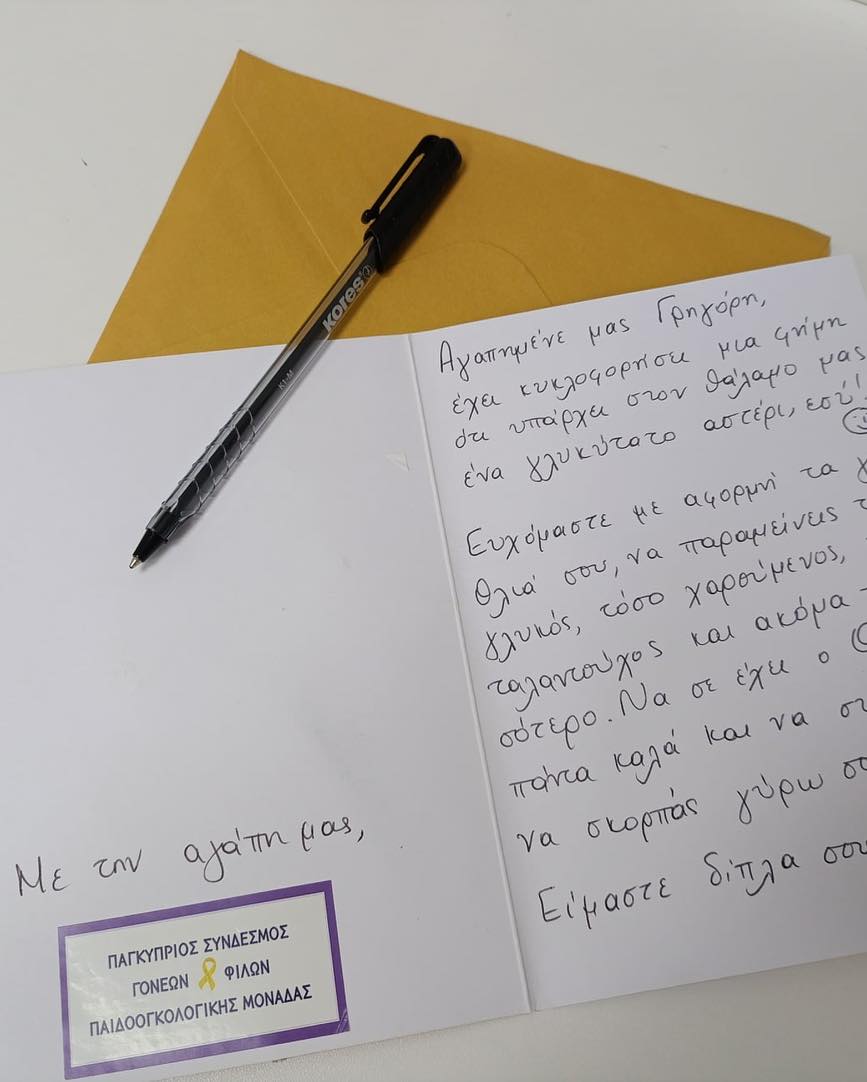 kores
K1-M
Αγαπημένε μας Γρηγόρη,
έχει κυκλοφορήσει μια φήμη
ότι υπάρχει στον θάλαμο μας
ένα γλυκύτατο αστέρι, εσύ!
Ευχόμαστε με αφορμή τα
θλιά σου, να παραμείνεις
γλυκός, τόσο χαρούμενος,
ταλαντούχος και ακόμα
σότερο. Να σε έχει ο
πάντα καλά και να
να σκορπάς γύρω
Είμαστε δίπλα σου
Με την αγάπη μας,
ΠΑΓΚΥΠΡΙΟΣ ΣΥΝΔΕΣΜΟΣ
ΓΟΝΕΩΝ ΦΙΛΩΝ
ΠΑΙΔΟΟΓΚΟΛΟΓΙΚΗΣ ΜΟΝΑΔΑΣ